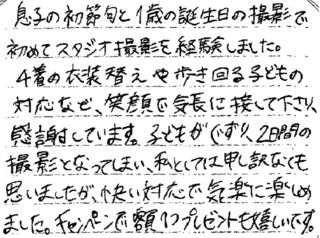 息子の初節句と1歳の誕生日の撮影で
初めてスタジオ撮影を経験しました。
4着の衣装替えや歩き回る子どもの
対応など、笑顔で気長に接して下さり、
感謝しています。子どもがぐずり、2日間の
撮影となってしまい、私としては申し訳なくも
思いましたが、快い対応で気楽に楽しめ
ました。キャンペーンで額1つプレゼントも嬉しいです。